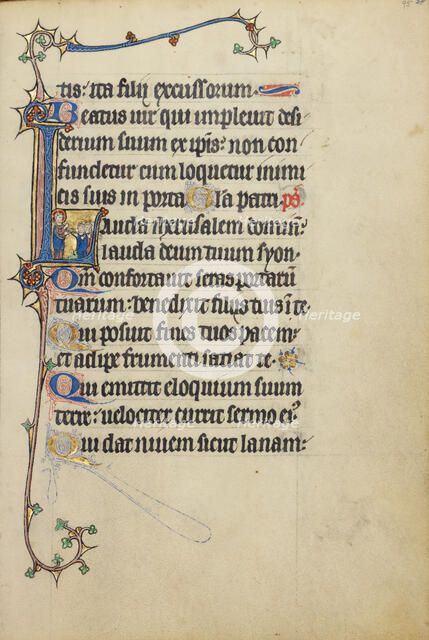 95
tis: ita filii excussorum.
Beatus uir qui impleuit desi
derium suum ex ipis: non con
fundetur cum loquetur inimi
cis suis in porta Gla patri. ps
Lauda iherusalem dominū:
lauda deum tuum syon.
Qm confortauit seras portarū
tuarum: benedixit filiis tuis ī te.
Qui posuit fines tuos pacem:
et adipe frumenti satiat te.
Qui emittit eloquium suum
terre: uelociter currit sermo ei9
Qui dat niuem sicut lanam:
Heritage Heritage
Images Images